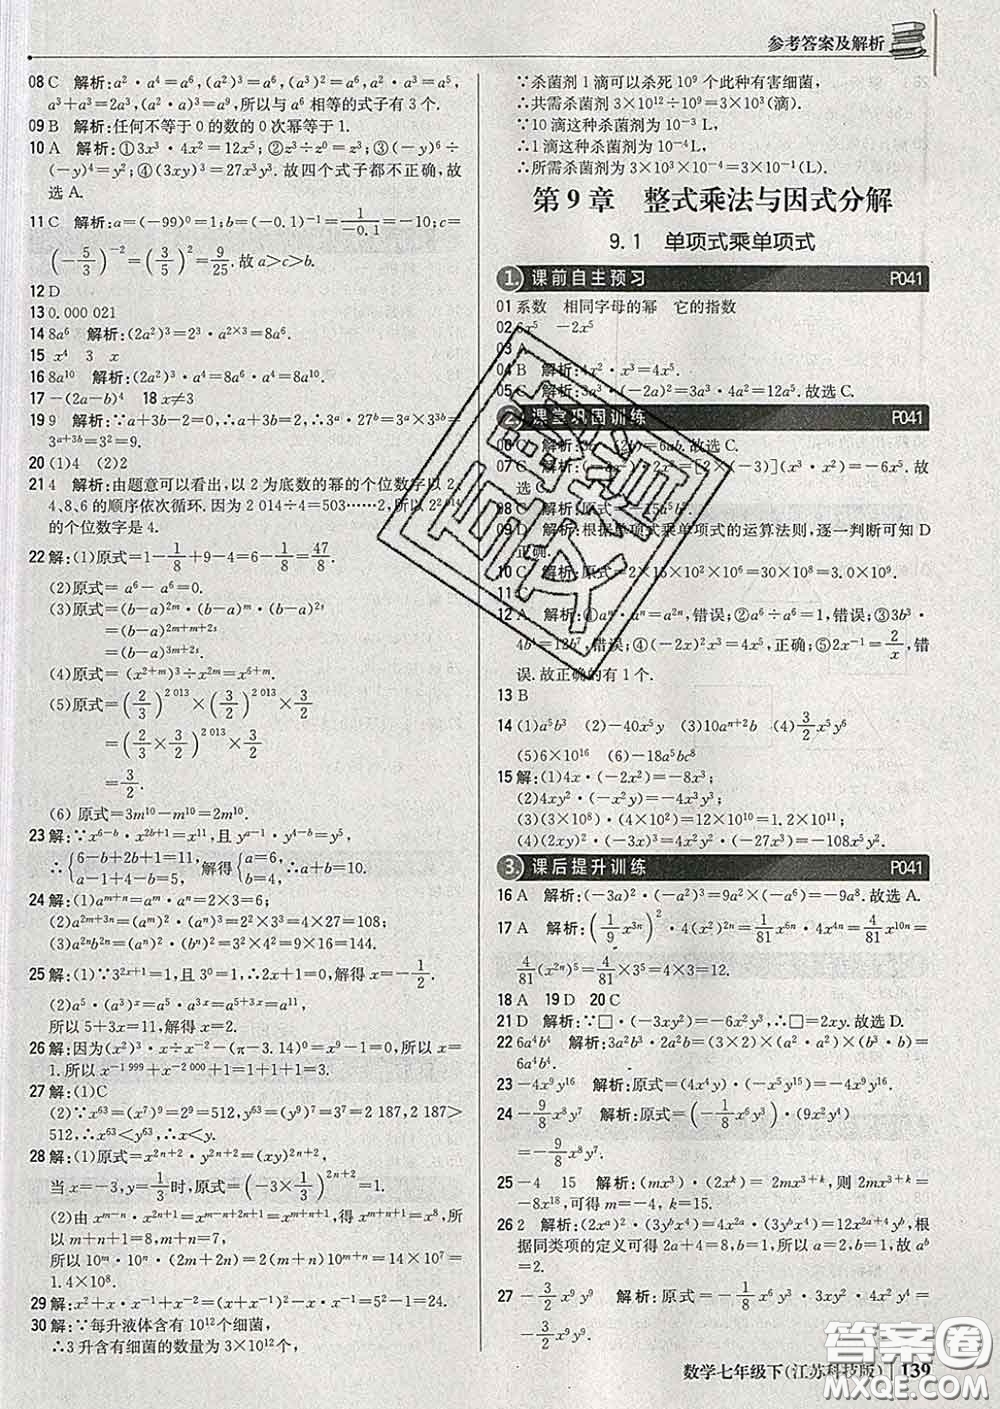 参考答案及解析
08 C 解析:a²·a⁴=a⁶,(−a²)³=−a⁶,a³·a²=a⁵,a²·a³=a⁵,
a³+a³=2a³,(a²)³=a⁶,所以与a⁶相等的式子有3个.
09 B 解析:任何不等于0的数的0次幂等于1.
10 A 解析:①3x³·4x²=12x⁵;②z³÷z⁰=z³;③(−y)⁶÷
(−y)⁴=y²;④(3xy)³=27x³y³.故四个式子都不正确.故
选A.
11 C 解析:a=(−99)⁰=1;b=(−0.1)⁻¹=1/−0.1=−10;c=
(−5/3)⁻²=(3/5)²=9/25.故a>c>b.
12 D
13 0.000 021
14 8a⁶ 解析:(2a²)³=2³·a²ˣ³=8a⁶.
15 x⁴ 3 x
16 8a¹⁰ 解析:(2a²)³·a⁴=8a⁶·a⁴=8a¹⁰.
17 −(2a−b)⁴ 18 x≠3
19 9 解析:∵a+3b−2=0,∴a+3b=2,∴3ᵃ·27ᵇ=3ᵃ×3³ᵇ=
3ᵃ⁺³ᵇ=3²=9.
20 (1)4 (2)2
21 4 解析:由题意可以看出,以2为底数的幂的个位数字以2、
4、8、6的顺序依次循环.因为2 014÷4=503……2,所以2²⁰¹⁴
的个位数字是4.
22 解:(1)原式=1−1/8+9−4=6−1/8=47/8.
(2)原式=a⁶−a⁶=0.
(3)原式=(b−a)²ᵐ·(b−a)ᵐ·(b−a)²
=(b−a)²ᵐ⁺ᵐ⁺²
=(b−a)³ᵐ⁺².
(4)原式=(x²ᵐ⁺ᵐ)³÷x²ᵐ=(x³ᵐ)³÷x²ᵐ=x⁷ᵐ.
(5)原式=(2/3)²⁰¹³×(3/2)²⁰¹³×3/2
=(2/3×3/2)²⁰¹³×3/2
=3/2.
(6)原式=3m¹⁰−m¹⁰=2m¹⁰.
23 解:∵x⁶⁻ᵇ·x²ᵇ⁺¹=x¹¹,且yᵃ⁻¹·y⁴⁻ᵇ=y⁵,
∴{6−b+2b+1=11, a−1+4−b=5, 解得{a=6, b=4.
24 解:(1)aᵐ⁺ⁿ=aᵐ·aⁿ=2×3=6;
(2)a²ᵐ⁺³ⁿ=(aᵐ)²·(aⁿ)³=4×27=108;
(3)a²ⁿb²ⁿ=(aⁿ)²·(bⁿ)²=3²×4²=9×16=144.
25 解:(1)∵3²ˣ⁺¹=1,且3⁰=1,∴2x+1=0,解得x=−1/2.
(2)a⁵·(aˣ)³=a⁵·a³ˣ=a⁵⁺³ˣ=a¹¹,
所以5+3x=11,解得x=2.
26 解:因为(x²)³·x÷x⁻²−(π−3.14)⁰=x⁹−1=0,所以x=
1.所以x⁻¹⁹⁹⁹+x⁻²⁰⁰⁰+1=1+1+1=3.
27 解:(1)C
(2)∵x⁶³=(x⁷)⁹=2⁹=512,y⁶³=(y⁹)⁷=3⁷=2 187,2 187>
512,∴x⁶³<y⁶³,∴x<y.
28 解:(1)原式=x²ⁿ⁺²·y²ⁿ⁺²=(xy)²ⁿ⁺²,
当x=−3,y=1/3时,原式=(−3×1/3)²ⁿ⁺²=1.
(2)由xᵐ⁻ⁿ·x²ⁿ⁺¹=xᵐ⁻ⁿ⁺²ⁿ⁺¹=xᵐ⁺ⁿ⁺¹,得xᵐ⁺ⁿ⁺¹=x⁸,所以
m+n+1=8,m+n=7,
所以10ᵐ·10ⁿ·(2m+2n)=2(m+n)10ᵐ⁺ⁿ=14×10⁷=
1.4×10⁸.
29 解:x²+x·x⁻¹+x⁻²=(x+x⁻¹)²−x·x⁻¹=5²−1=24.
30 解:∵每升液体含有10¹²个细菌,
∴3升含有细菌的数量为3×10¹²个,
∵杀菌剂1滴可以杀死10⁹个此种有害细菌,
∴共需杀菌剂3×10¹²÷10⁹=3×10³(滴).
∵10滴这种杀菌剂为10⁻³L,
∴1滴这种杀菌剂为10⁻⁴L,
∴所需杀菌剂为3×10³×10⁻⁴=3×10⁻¹(L).
第9章 整式乘法与因式分解
9.1 单项式乘单项式
1. 课前自主预习 P041
01 系数 相同字母的幂 它的指数
02 6x⁵ −2x⁵
03 A
04 B 解析:4x²·x³=4x⁵.
05 C 解析:3a³·(−2a)²=3a³·4a²=12a⁵.故选C.
2. 课堂巩固训练 P041
06 C 解析:3a·(2b)=6ab.故选C.
07 C 解析:·2x²=[2×(−3)](x³·x²)=−6x⁵.故
选C
08 C 解析:原式=−15a⁵b³.
09 D 解析:根据单项式乘单项式的运算法则,逐一判断可知D
正确.
10 C 解析:原式=2×15×10²×10⁶=30×10⁸=3.0×10⁹.
11 C
12 A 解析:①aⁿ·aⁿ=a²ⁿ,错误;②a⁶÷a⁶=1,错误;③3b³·
4b⁴=12b⁷,错误;④(−4x⁻³)²=16x⁻⁶,正确;⑤2x⁻¹=2/x,错
误.故正确的有1个.
13 B
14 (1)a⁵b³ (2)−40x⁵y (3)10aⁿ⁺²b (4)3/2x⁵y⁶
(5)6×10¹⁶ (6)−18a⁵bc⁸
15 解:(1)4x·(−2x²)=−8x³;
(2)4xy²·(−x²y)=−4x³y³;
(3)(3×10⁵)·(4×10⁴)=12×10⁹=1.2×10¹⁰;
(4)(2xy)²·(−3x)³=4x²y²·(−27x³)=−108x⁵y².
3. 课后提升训练 P041
16 A 解析:(−3a)²·(−a²)³=9a²×(−a⁶)=−9a⁸.故选A.
17 A 解析:(1/9x³ⁿ)²·4(x²)²ⁿ=1/81x⁶ⁿ·4x⁴ⁿ=4/81x¹⁰ⁿ=
4/81(x²ⁿ)⁵=4/81×3⁵=4×3=12.
18 A 19 D 20 C
21 D 解析:∵□·(−3xy²)=−6x²y³,∴□=2xy.故选D.
22 6a⁴b⁴ 解析:3a²b³·2a²b=(3×2)×(a²·a²)(b³·b)=
6a⁴b⁴.
23 −4x⁹y¹⁶ 解析:原式=(4x⁶y⁴)·(−x³y¹²)=−4x⁹y¹⁶.
24 −9/8x⁸y⁷ 解析:原式=(−1/8x⁶y³)·(9x²y⁴)
=−9/8x⁸y⁷.
25 −4 15 解析:(mx³)·(2xᵏ)=2mx³⁺ᵏ,则2mx³⁺ᵏ=
−8x¹⁸,可得m=−4,k=15.
26 2 解析:(2xᵃ)²·(3yᵇx⁴)=4x²ᵃ·(3yᵇx⁴)=12x²ᵃ⁺⁴yᵇ,根
据同类项的定义可得2a+4=8,b=1.所以a=2,b=1.故aᵇ
=2.
27 −3/2x⁹y⁸ 解析:原式=−1/8x⁶y³·3xy²·4x²y³=
−3/2x⁹y⁸.
数学七年级下(江苏科技版) 139
答案圈
MXQE.COM